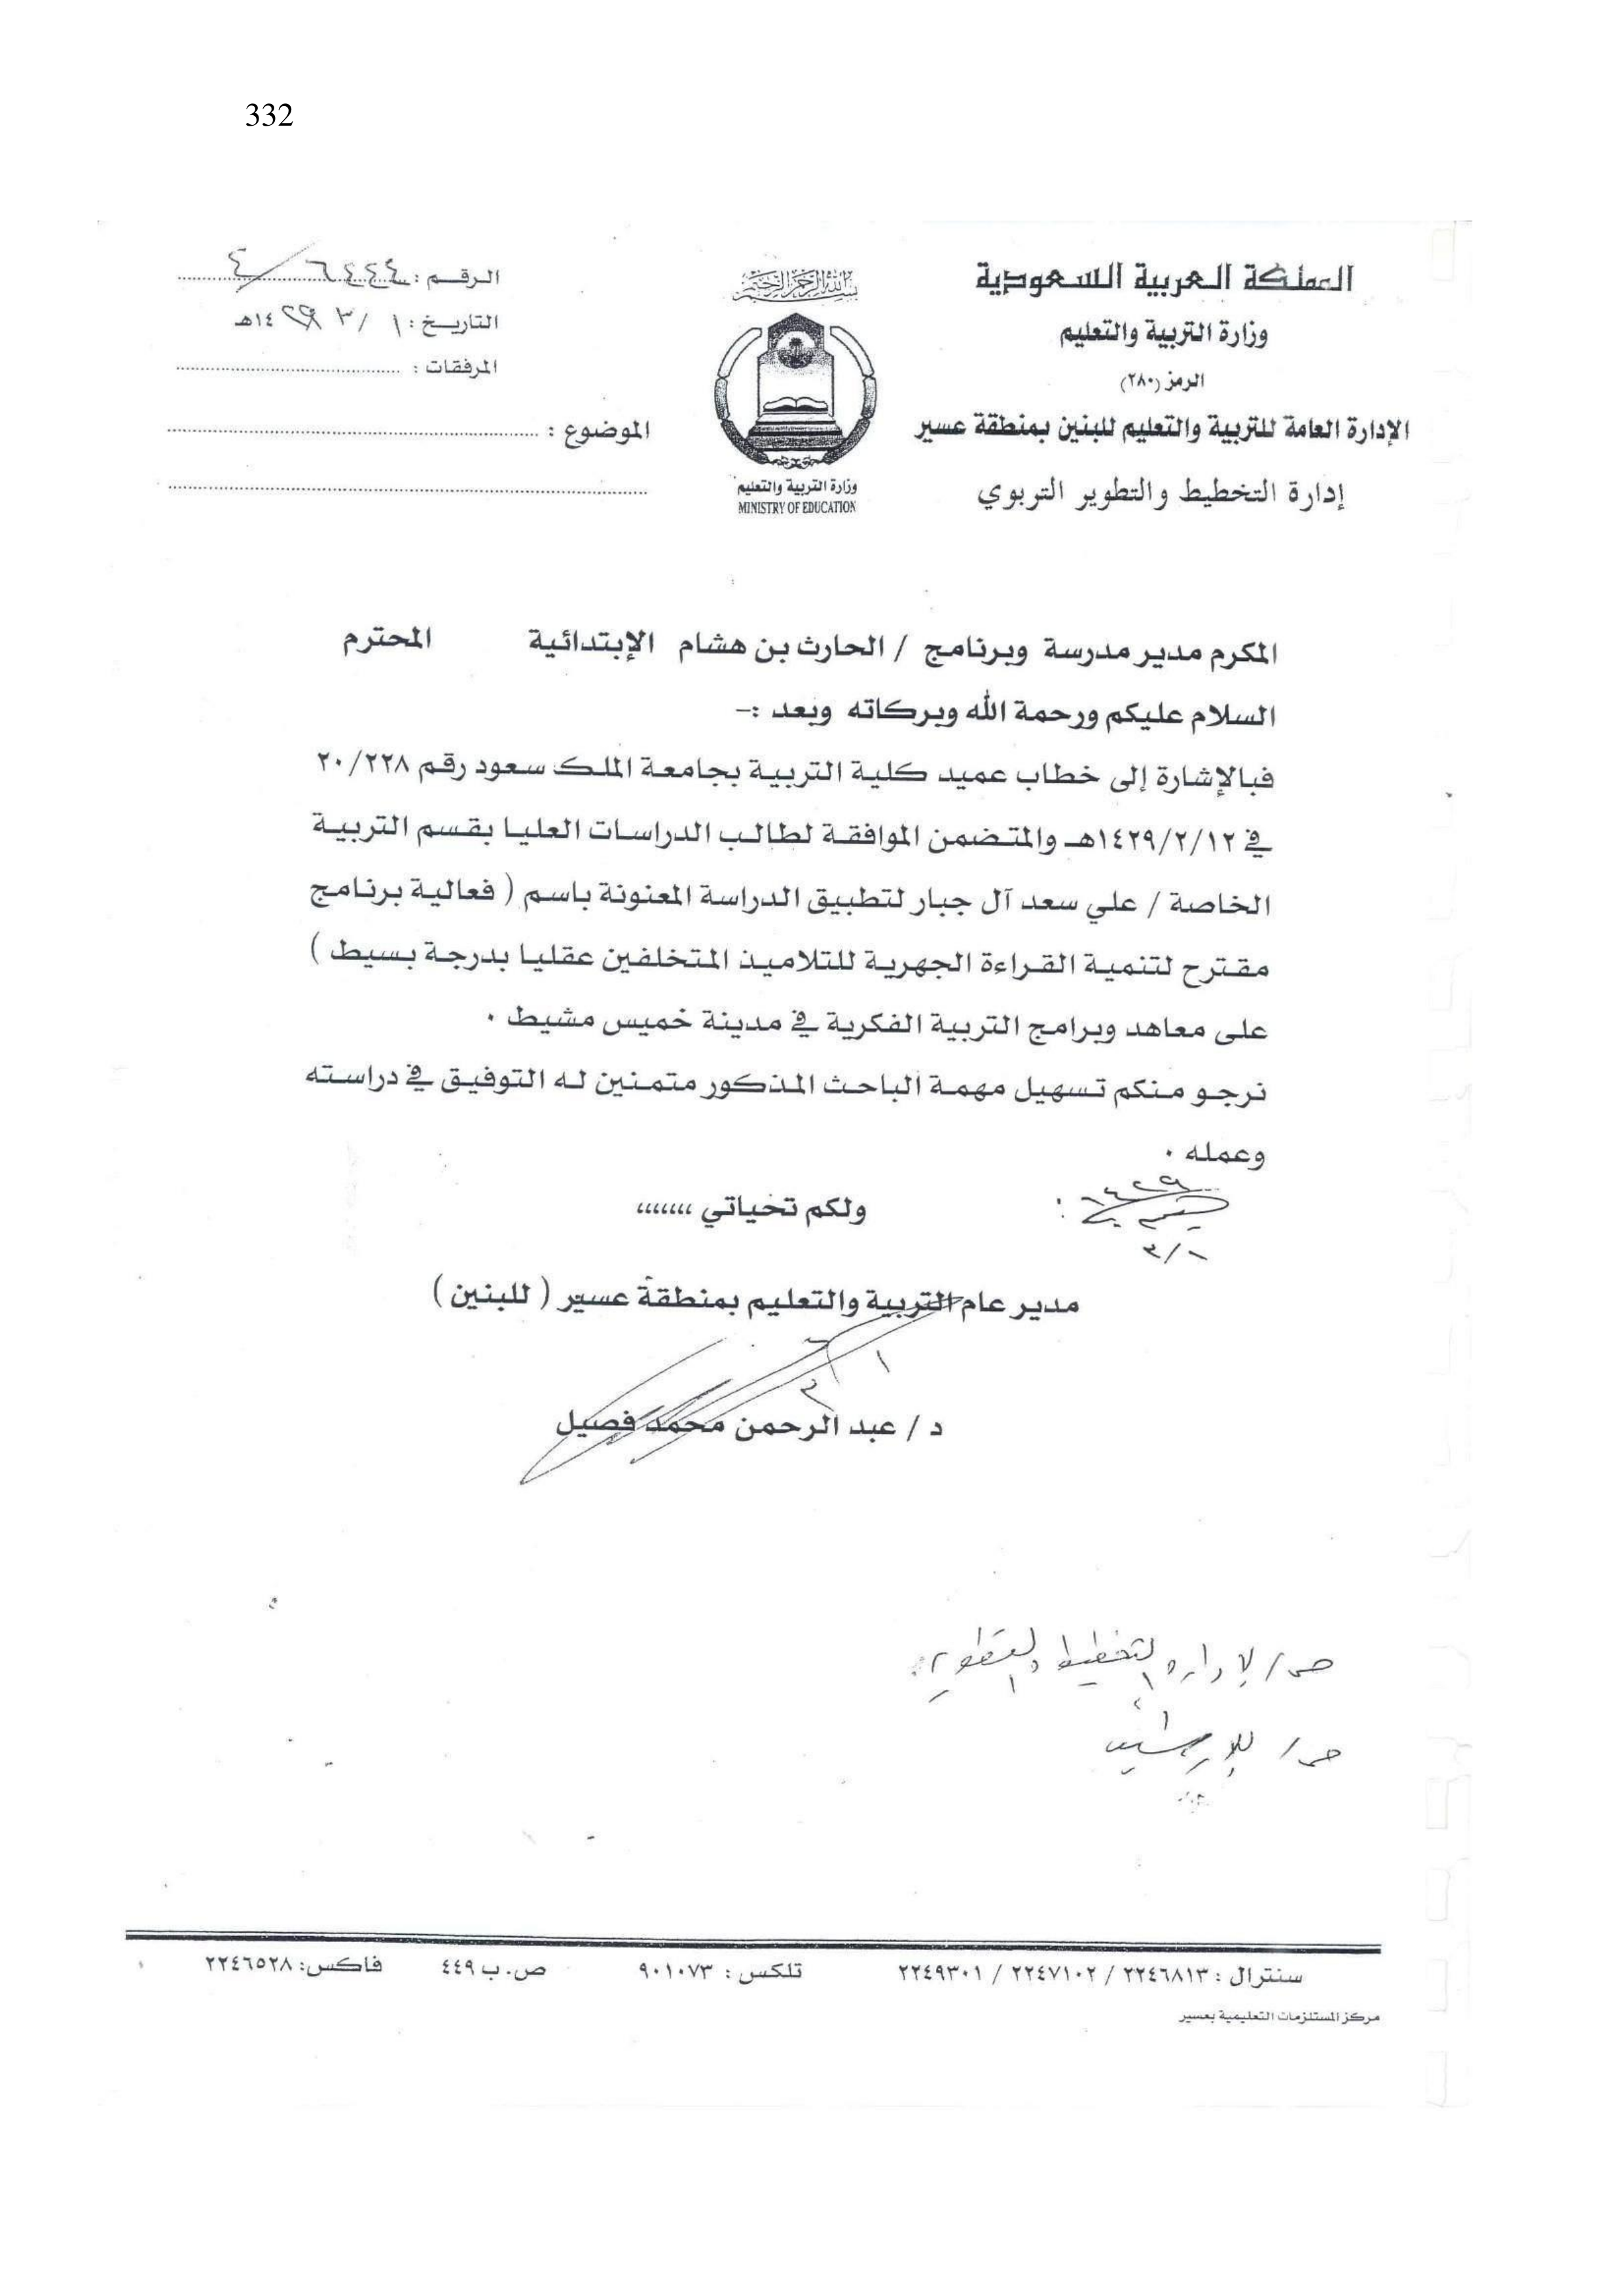 332
المملكة العربية السعودية
وزارة التربية والتعليم
الرمز (٢٨٠)
الإدارة العامة للتربية والتعليم للبنين بمنطقة عسير
إدارة التخطيط والتطوير التربوي
بسم الله الرحمن الرحيم
وزارة التربية والتعليم
MINISTRY OF EDUCATION
الرقم :
التاريخ : ١ / ٣ / ١٤٢٩هـ
المرفقات :
الموضوع :
المكرم مدير مدرسة وبرنامج / الحارث بن هشام الإبتدائية المحترم
السلام عليكم ورحمة الله وبركاته وبعد :-
فبالإشارة إلى خطاب عميد كلية التربية بجامعة الملك سعود رقم ٢٠/٢٢٨
في ١٤٢٩/٢/١٢هـ والمتضمن الموافقة لطالب الدراسات العليا بقسم التربية
الخاصة / علي سعد آل جبار لتطبيق الدراسة المعنونة باسم ( فعالية برنامج
مقترح لتنمية القراءة الجهرية للتلاميذ المتخلفين عقليا بدرجة بسيط )
على معاهد وبرامج التربية الفكرية في مدينة خميس مشيط .
نرجو منكم تسهيل مهمة الباحث المذكور متمنين له التوفيق في دراسته
وعمله .
ولكم تحياتي ،،،،،،،
١٤٢٩
٣/١
مدير عام التربية والتعليم بمنطقة عسير ( للبنين )
د / عبد الرحمن محمد فصيل
ص / لإدارة التخطيط والتطوير
ص / للإرشيف
سنترال : ٢٢٤٦٨١٣ / ٢٢٤٧١٠٢ / ٢٢٤٩٣٠١ تلكس : ٩٠١٠٧٣ ص.ب ٤٤٩ فاكس: ٢٢٤٦٥٢٨
مركز المستلزمات التعليمية بعسير